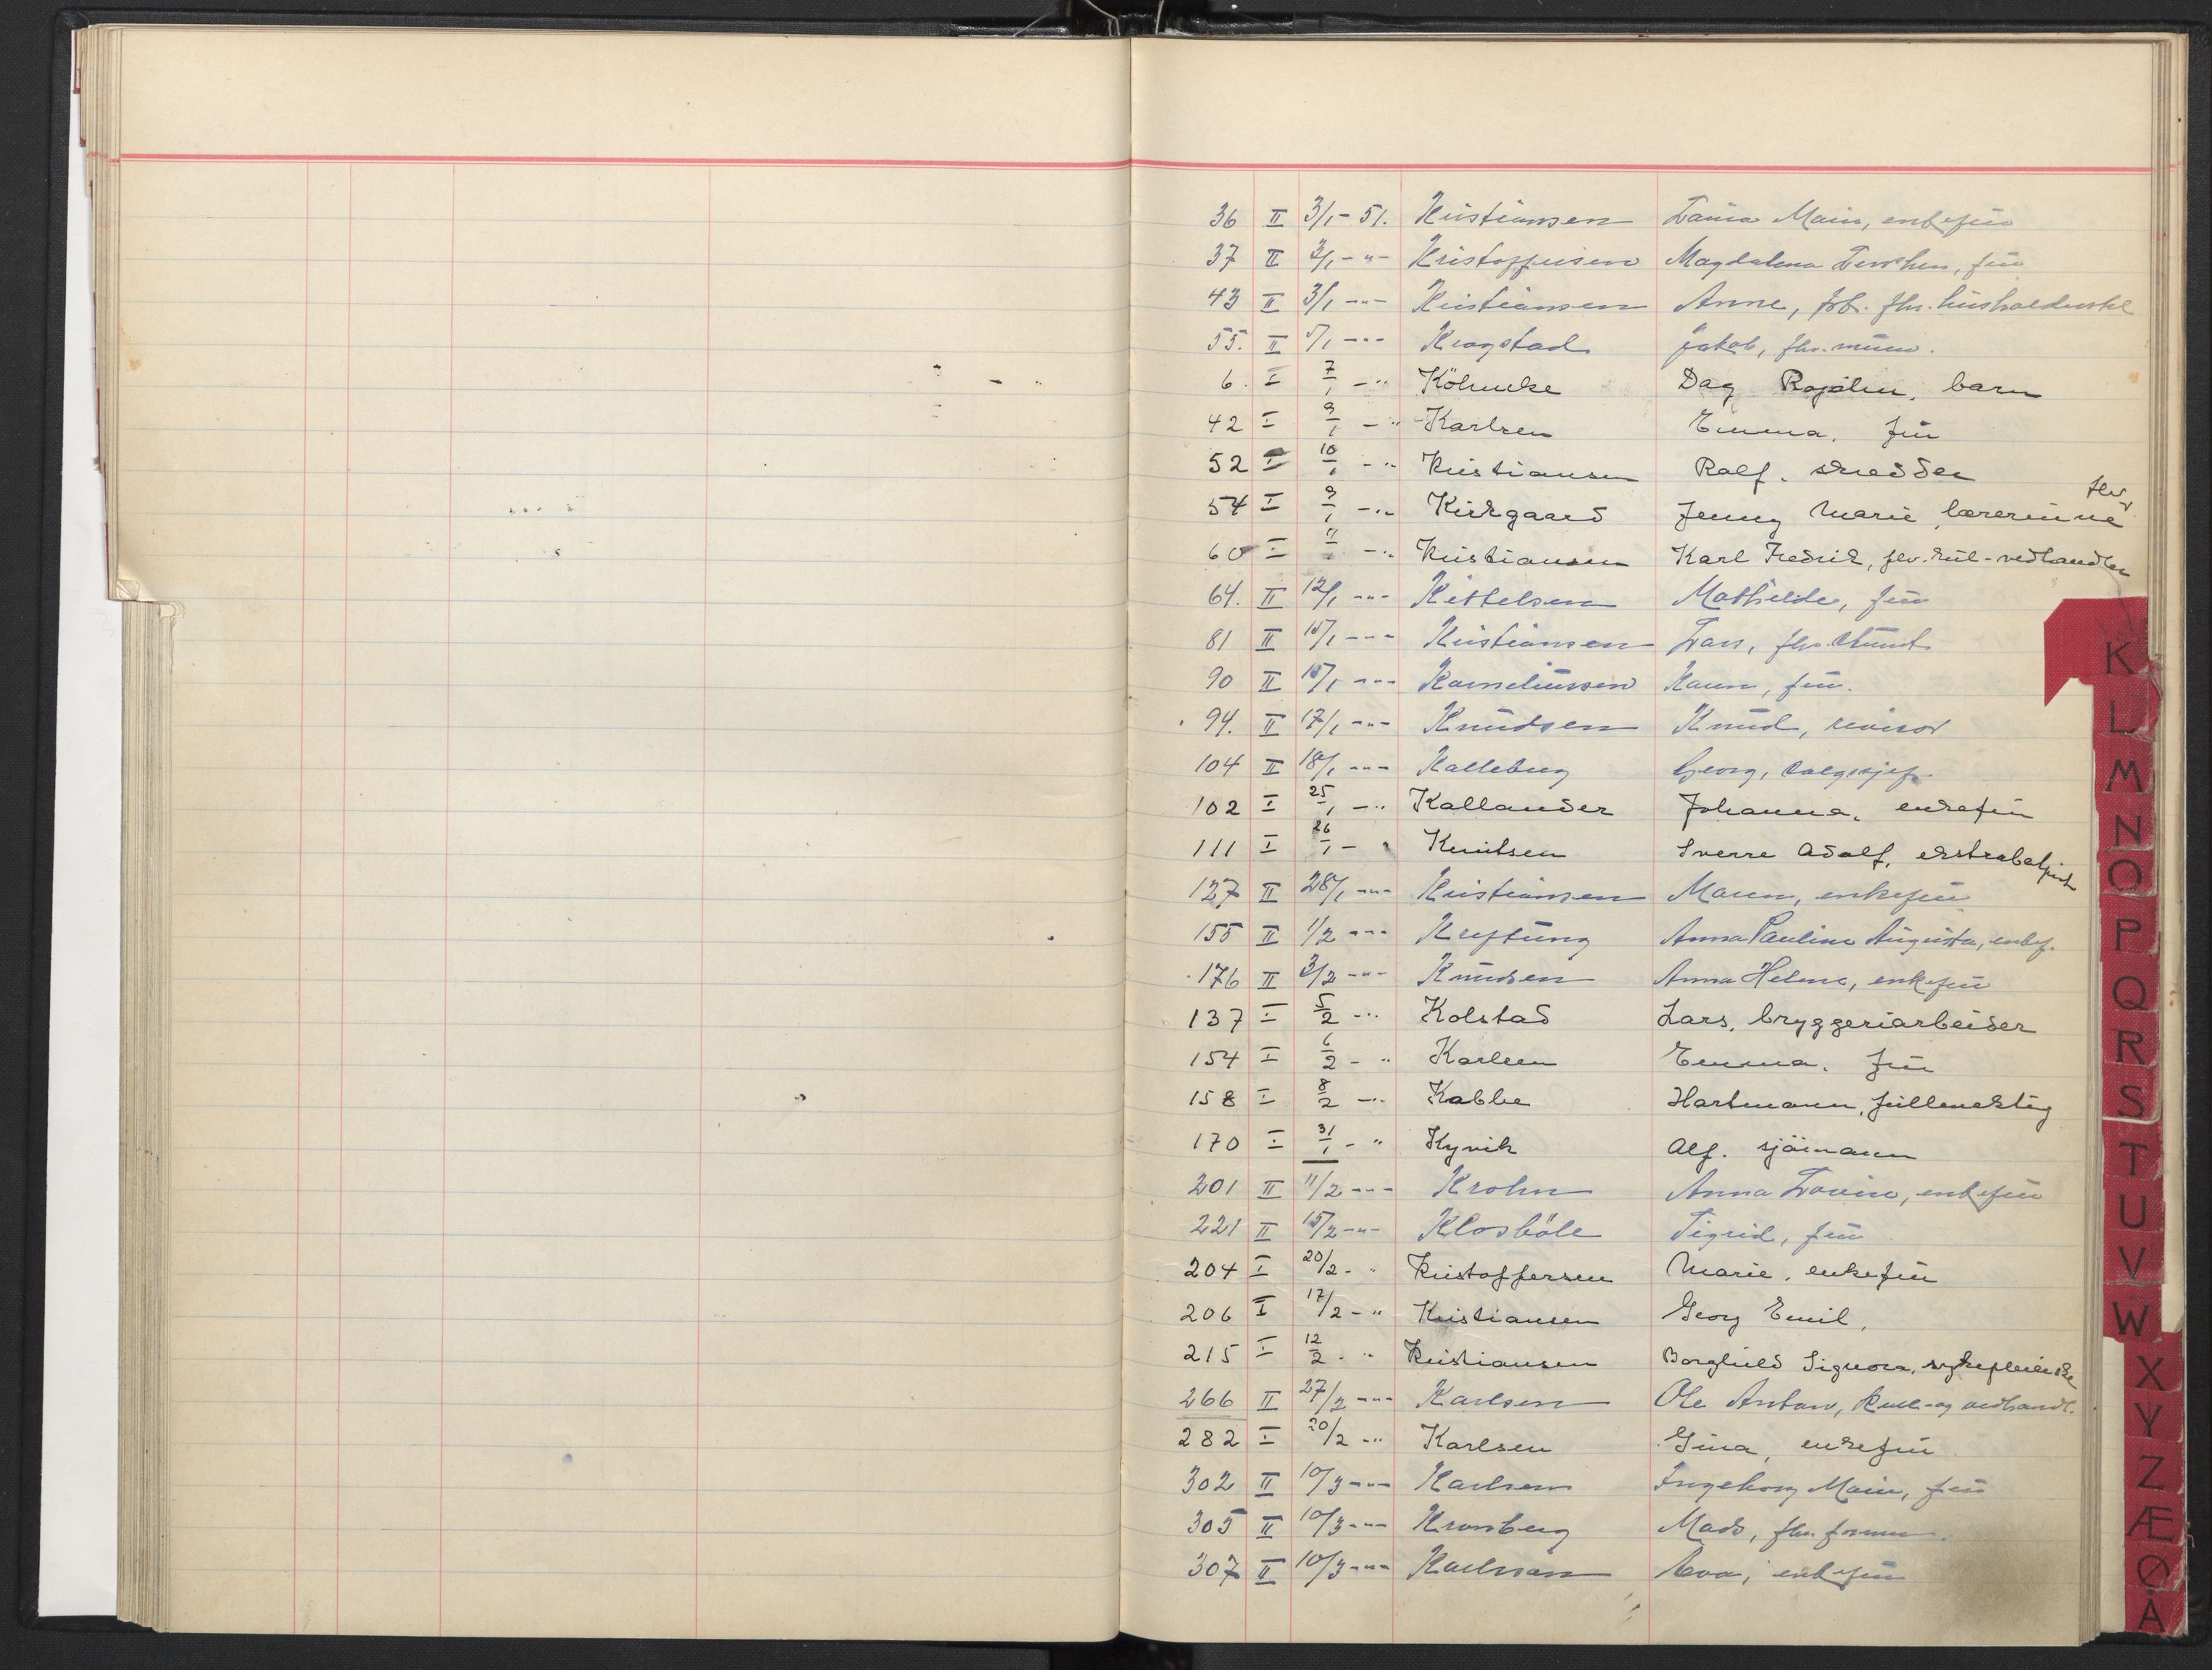 36 II 3/1 - 51. Kristiansen Laura Marie, enkefru
37 II 3/1 - " - Kristoffersen Magdalena, fru
43 II 3/1 - " - Kristiansen Anne, fhv. husholderske
55. II 5/1 - " - Krogstad Jakob, fhv. murer.
6. I 7/1 - " Köhncke Dag, barn
42 I 9/1 - " Karlsen Emma. fru
52 I 10/1 - " Kristiansen Ralf. skredder
54 I 9/1 - " Kirkgaard Jenny Marie, lærerinne fhv
60 I 11/1 - " Kristiansen Karl Fredrik, fhv. kul-vedhandler
64. II 12/1 - " - Kittelsen Mathilde, fru
81 II 15/1 - " - Kristiansen Lars, fhv.
90 II 15/1 - " - Korneliussen Karen, fru.
94. II 17/1 - " - Knudsen Knud, revisor
104 II 18/1 - " - Kalleberg Georg, salgssjef.
102 I 25/1 - " Kallander Johanna. enkefru
111 I 26/1 - " Knutsen Sverre Adolf. ekstrabetjent
127 II 28/1 - " - Kristiansen Maren, enkefru
155 II 1/2 - " - Kreftung Anna Pauline Augusta, enkef.
176 II 3/2 - " - Knudsen Anna Helene, enkefru
137 I 5/2 - " Kolstad Lars. bryggeriarbeider
154 I 6/2 - " Karlsen Emma. fru
158 I 8/2 - " Kabbe Hartmann, fullmektig
170 I 31/1 - " Kyvik Alf. sjömann
201 II 11/2 - " - Krohn Anna Lovise, enkefru
221 II 15/2 - " - Klosböle Sigrid, fru
204 I 20/2 - " Kristoffersen Marie. enkefru
206 I 17/2 - " Kristiansen Georg Emil.
215 I 12/2 - " Kristiansen Borghild Signora. sykepleierske
266 II 27/2 - " - Karlsen Ole Anton, kull- og vedhandl.
282 I 20/2 - " Karlsen Gina, enkefru
302 II 10/3 - " - Karlsen Ingeborg Marie, fru
305 II 10/3 - " - Kronberg Mads, fhv. formann.
307 II 10/3 - " - Karlsson Eva, enkefru
K
L
M
N
O
P
Q
R
S
T
U
V
W
X
Y
Z
Æ
Ø
Å